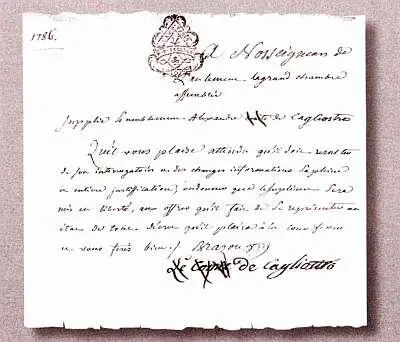 1786.
A Nosseigneurs de
Parlement la grand chambre
assemblée
Supplie humblement Alexandre Cte de Cagliostro
Qu'il vous plaise attendu qu'il doit resulter
de son interrogatoire et des charges informations sa pleine
et entiere justification, ordonner que le supliant sera
mis en liberté, aux offres qu'il fait de se représenter en
état de toute décret qu'il plaira à la cour
et vous ferés bien./.
Le Comte de Cagliostro